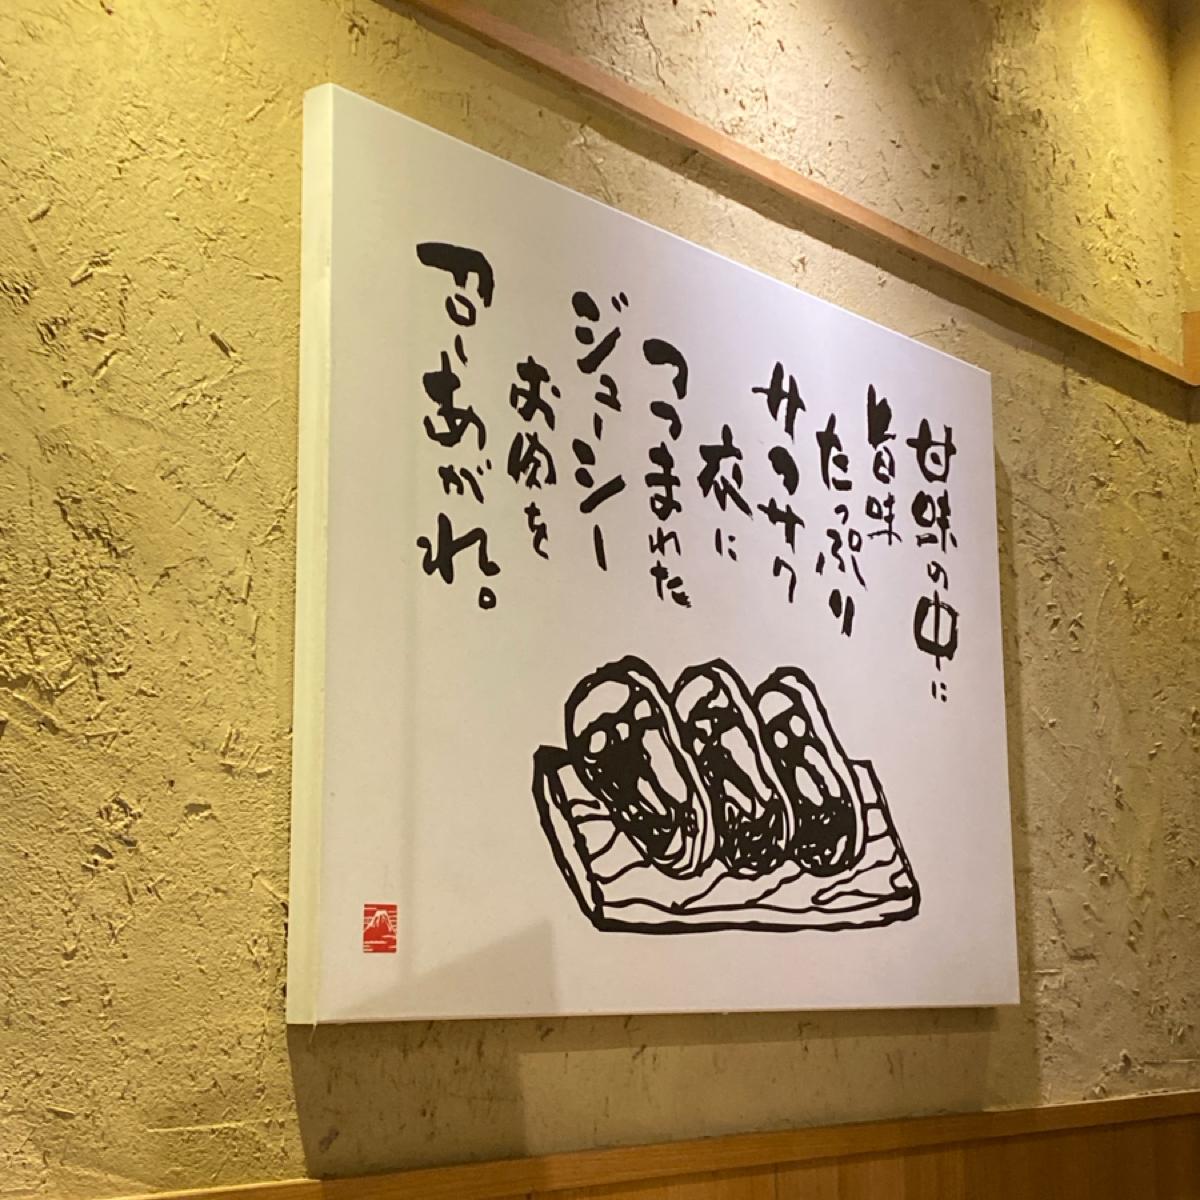 甘味の中に
旨味
たっぷり
サクサク
衣に
つつまれた
ジューシー
お肉を
召しあがれ。